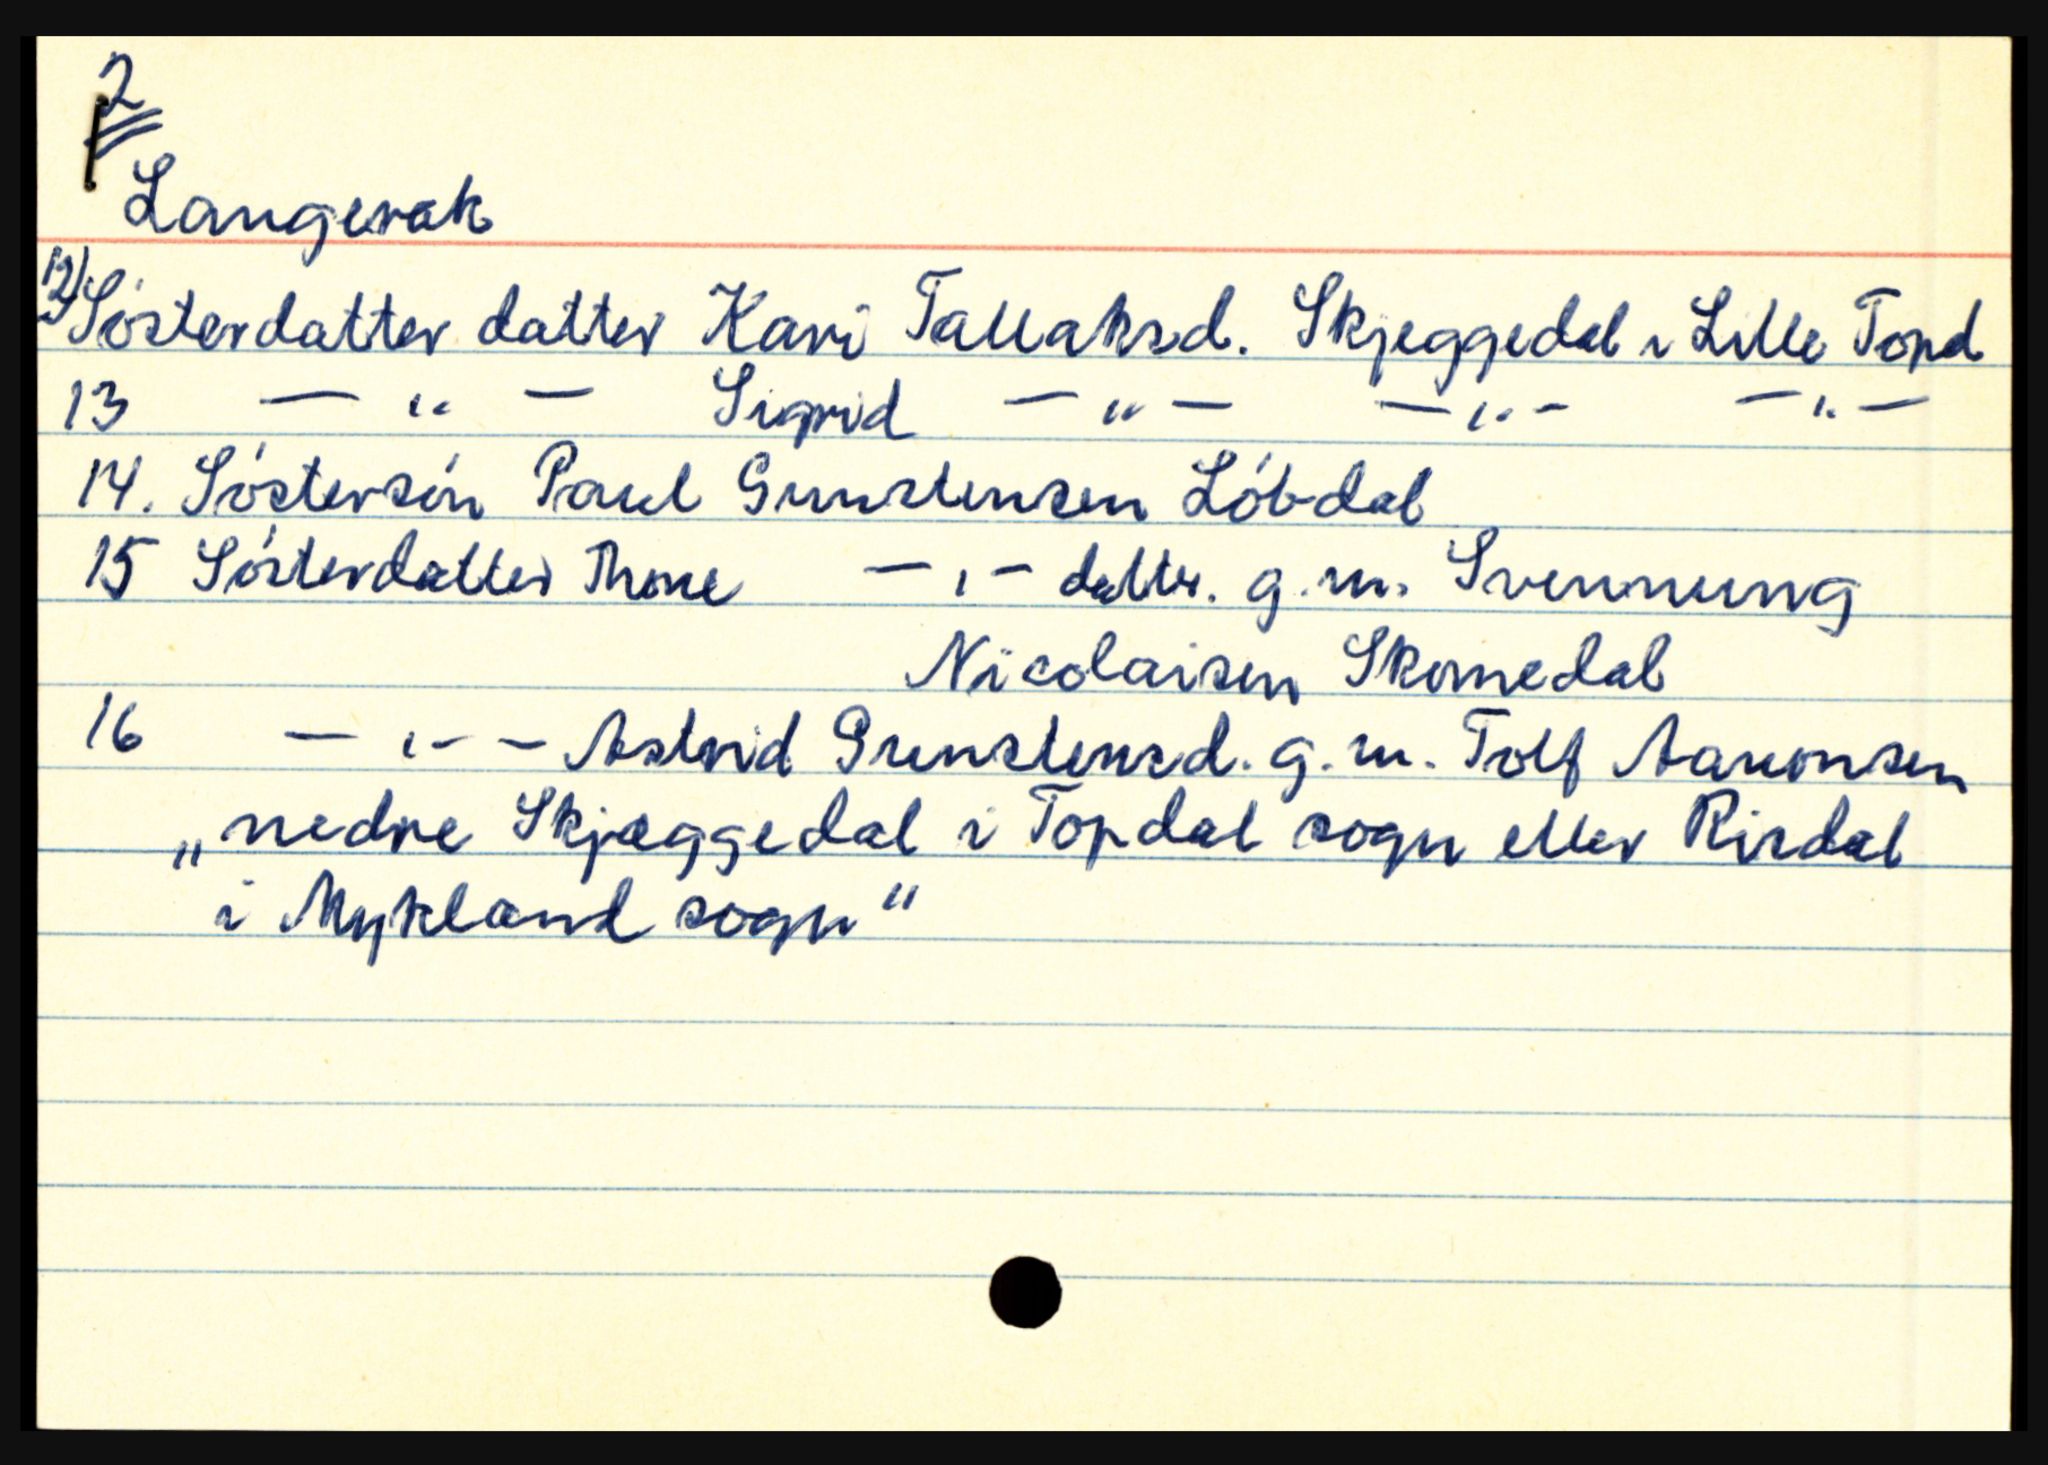 2
Langerak
12) Søsterdatter datter Kari Tallaksd. Skjeggedal i Lille Topd
13 — „ — Sigrid — „ — — „ — — „ —
14. Søstersøn Paul Gunstensen Løbdal
15 Søsterdatter Thone — „ — datter. g.m. Svennung
Nicolaisen Skomedal
16 — „ — — Astrid Gunstensd. g.m. Tolf Aanonsen
„nedre Skjæggedal i Topdal sogn eller Risdal
i Mykland sogn"